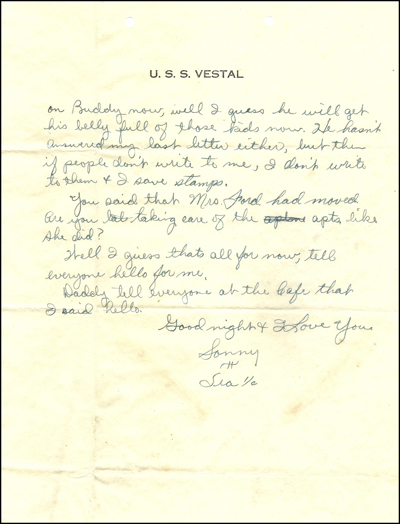 U. S. S. VESTAL
on Buddy now, well I guess he will get
his belly full of those kids now. He hasn't
answered my last letter either, but then
if people don't write to me, I don't write
to them & I save stamps.
You said that Mrs. Ford had moved
are you taking care of the apts, like
she did?
Well I guess thats all for now, tell
everyone hello for me.
Daddy tell everyone at the Cafe that
I said hello.
Good night & I Love You
Sonny
H
Sea 1/c